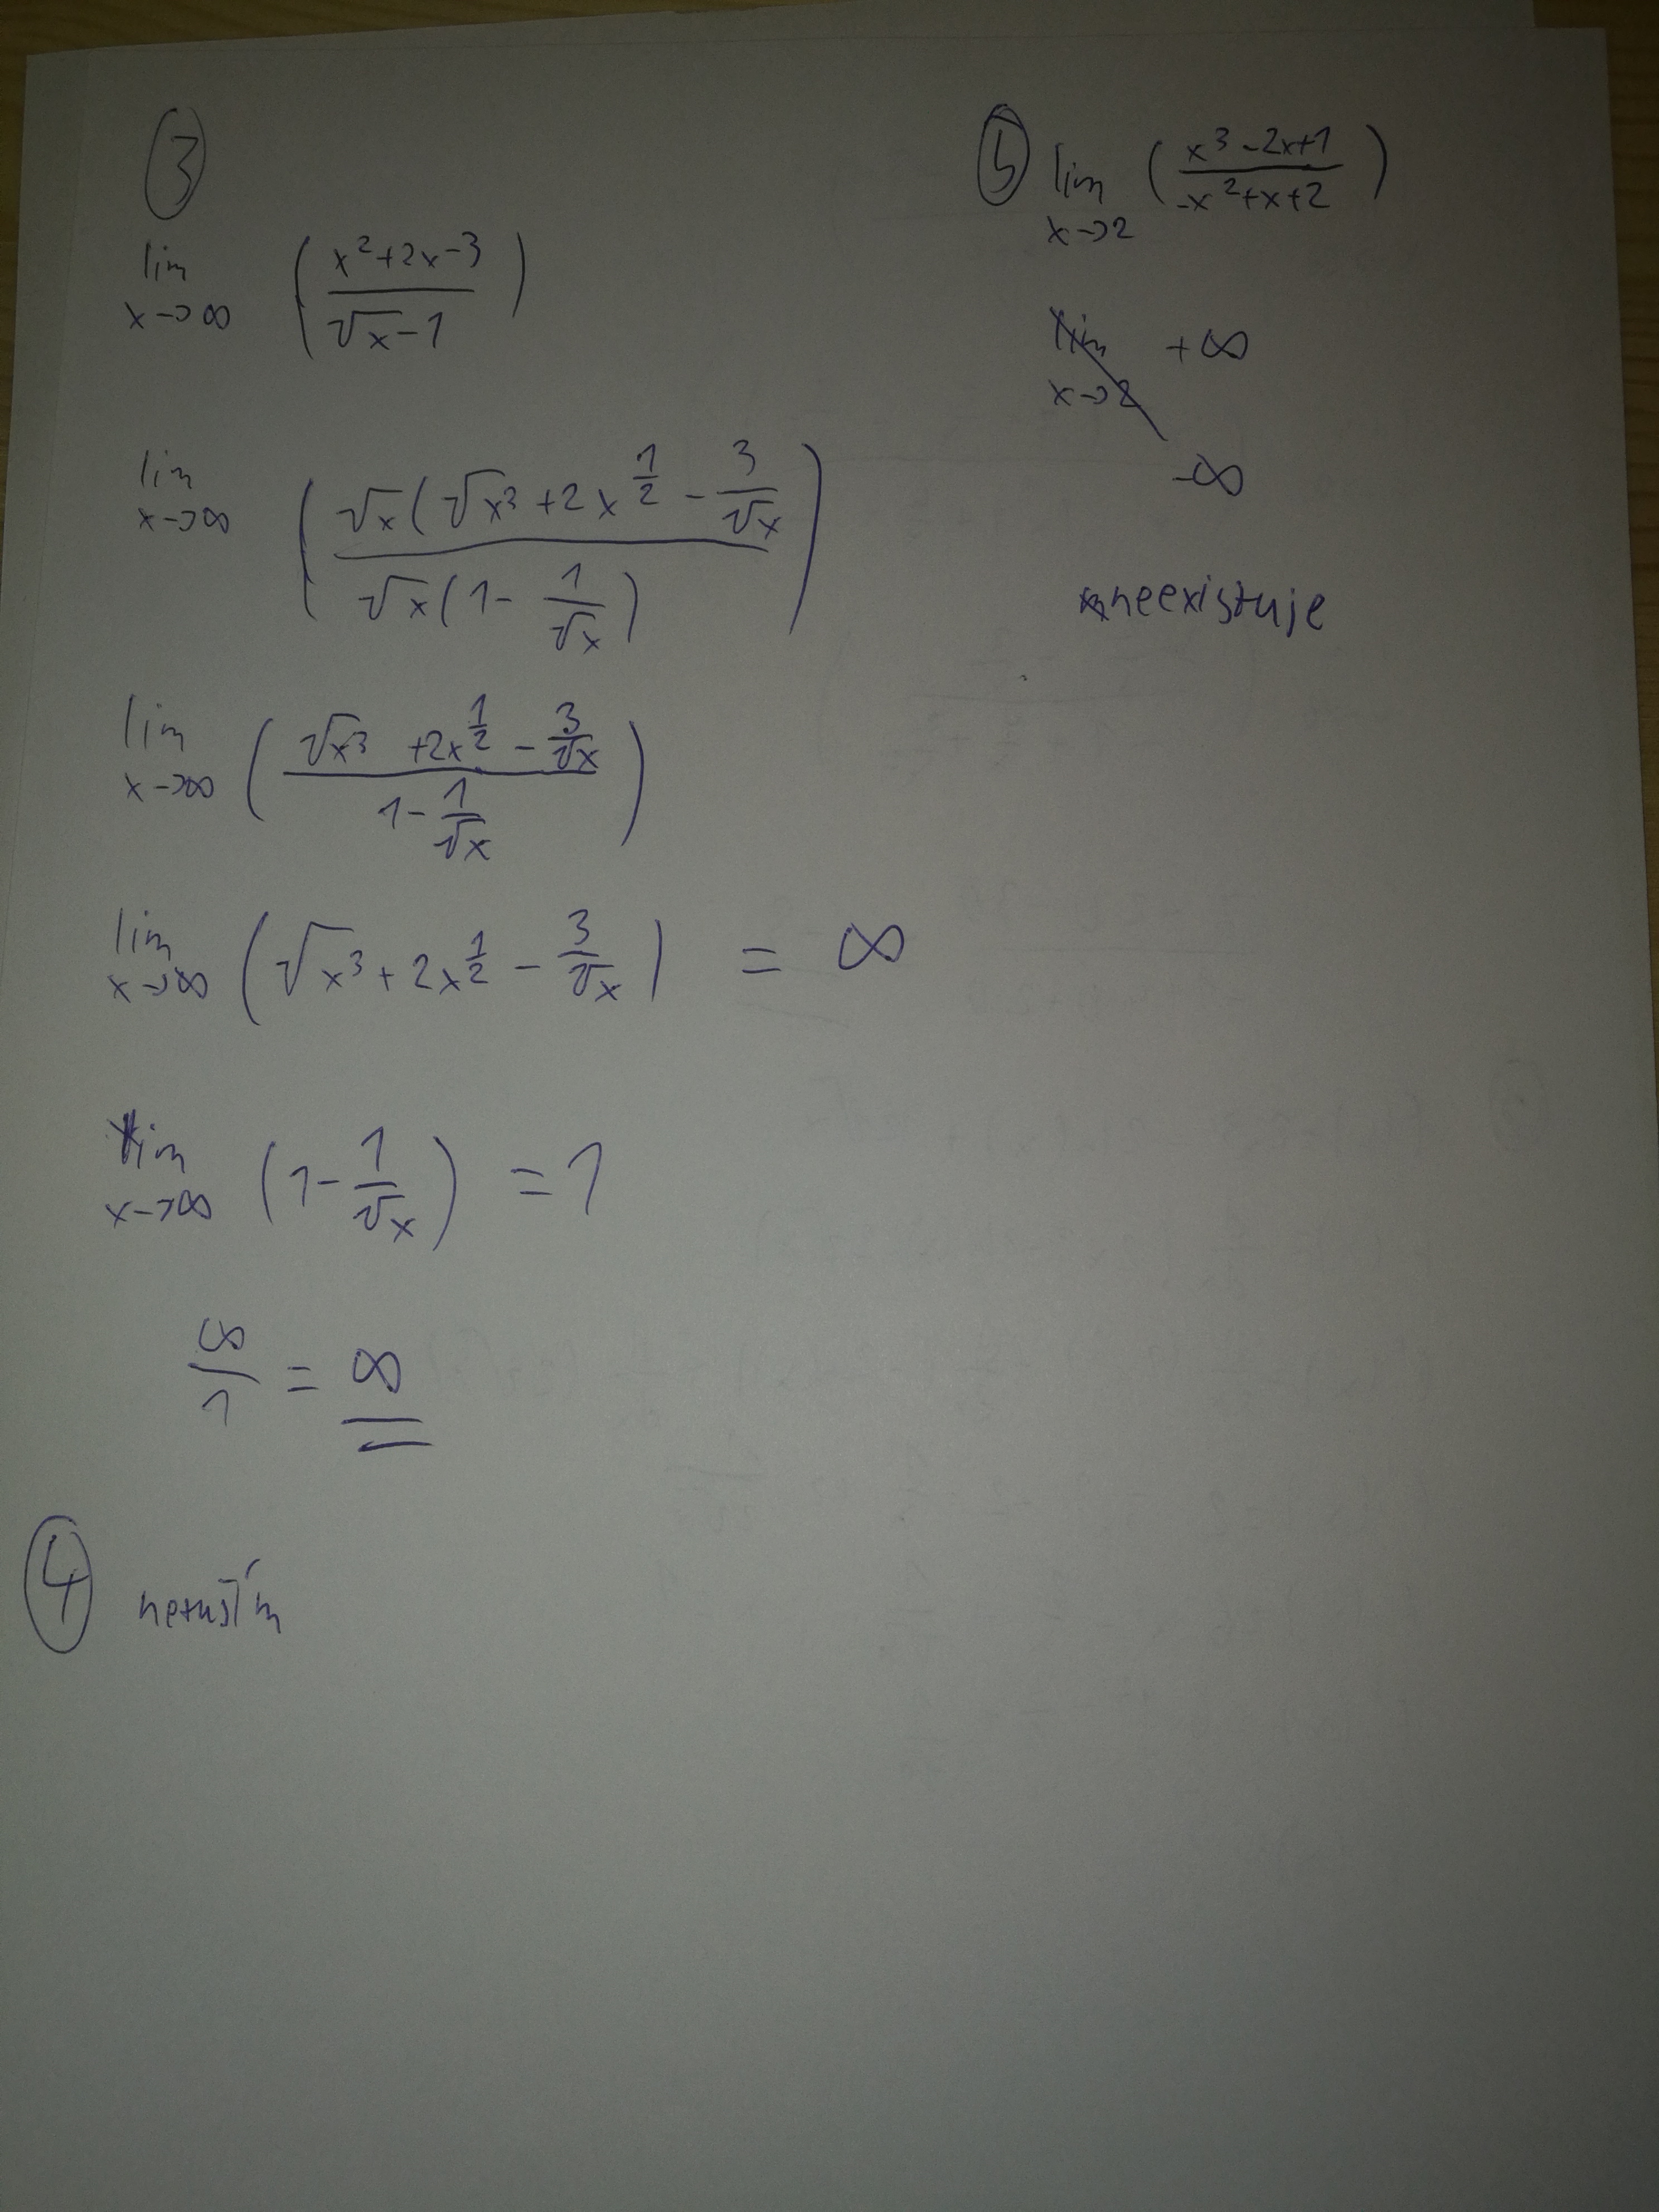 ③
lim x→∞ ( (x²+2x-3) / (√x-1) )
lim x→∞ ( √x(√x³+2x^(1/2) - 3/√x) / √x(1 - 1/√x) )
lim x→∞ ( (√x³ +2x^(1/2) - 3/√x) / (1 - 1/√x) )
lim x→∞ (√x³ + 2x^(1/2) - 3/√x) = ∞
lim x→∞ (1 - 1/√x) = 1
∞/1 = ∞
④ netuším
⑤ lim x→2 ( (x³-2x+1) / (-x²+x+2) )
lim x→2 +∞
-∞
neexistuje